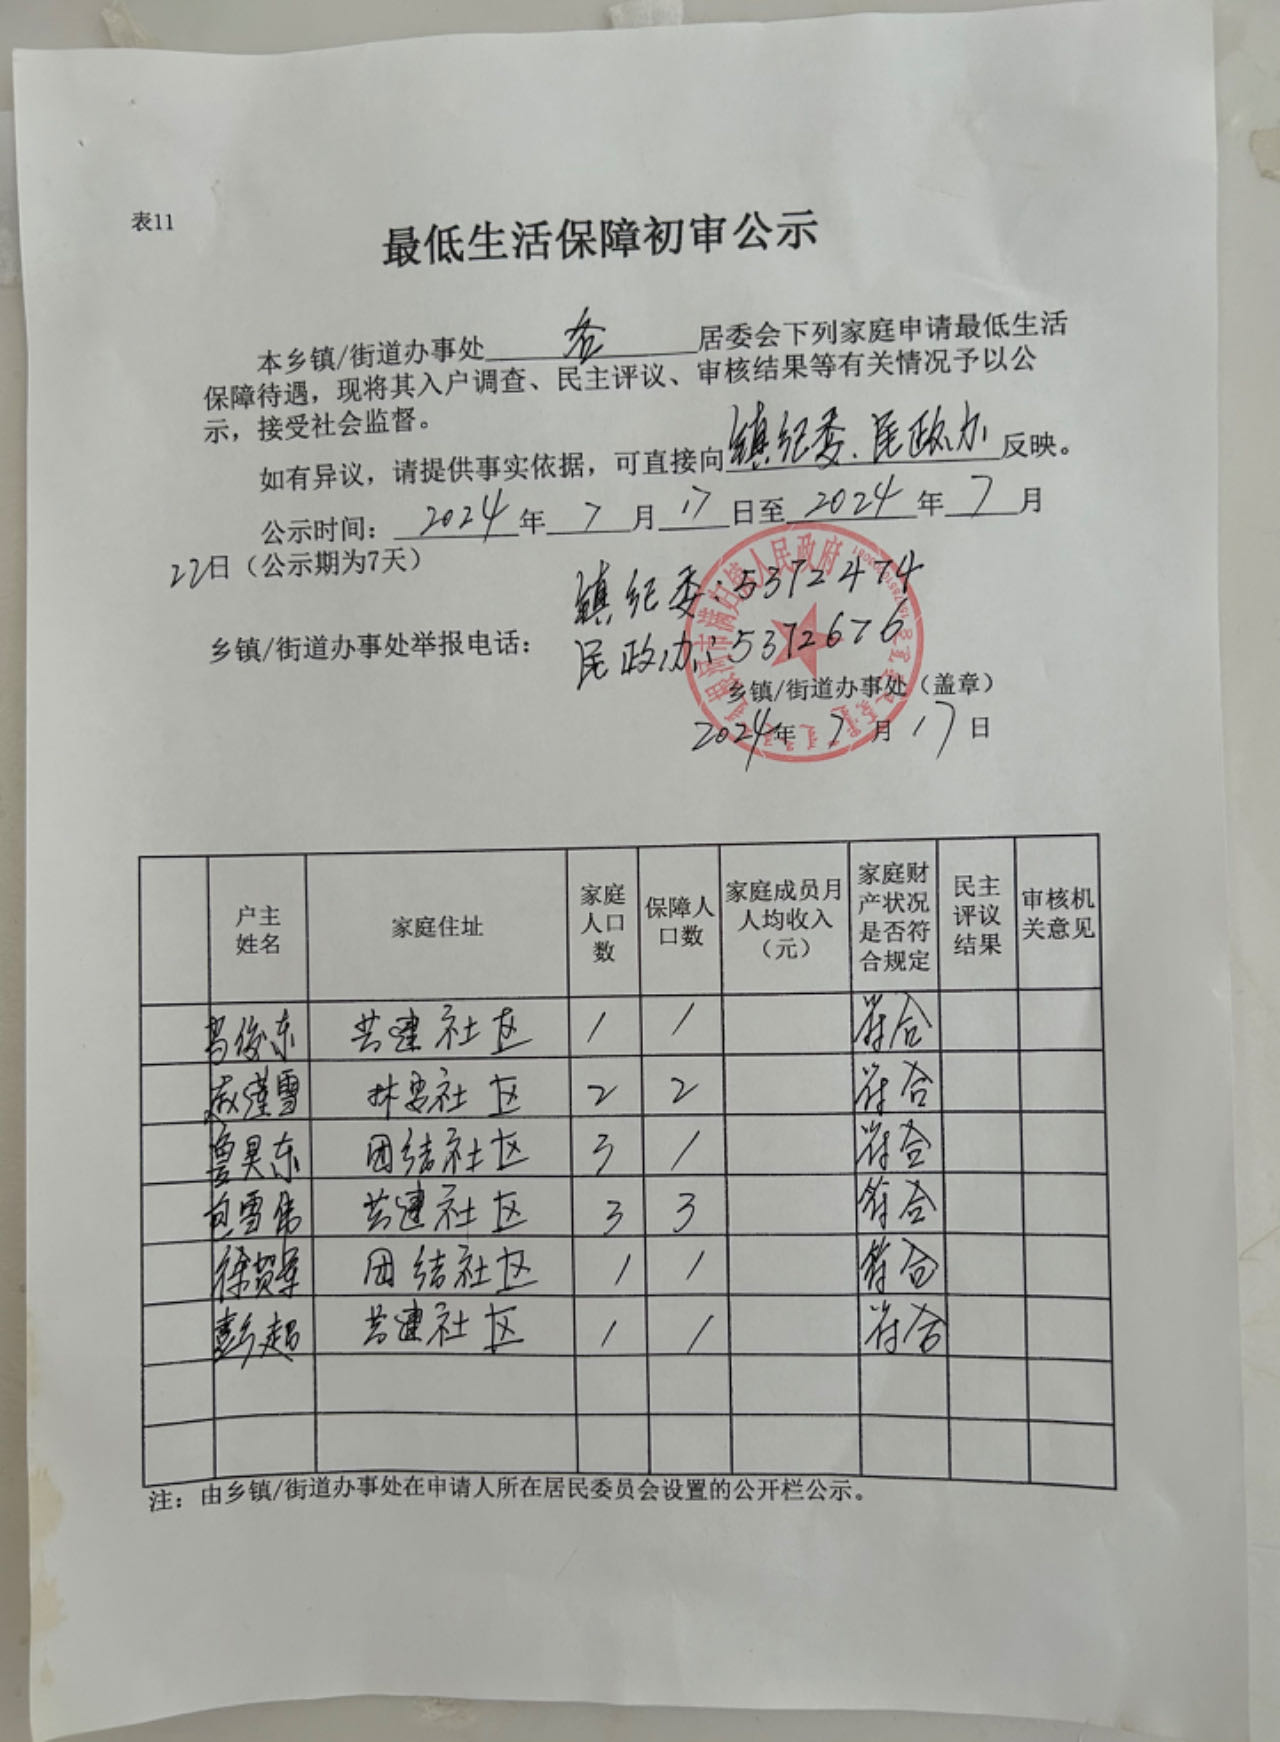 表11
最低生活保障初审公示
本乡镇/街道办事处 各 居委会下列家庭申请最低生活
保障待遇，现将其入户调查、民主评议、审核结果等有关情况予以公
示，接受社会监督。
如有异议，请提供事实依据，可直接向镇纪委、民政办反映。
公示时间： 2024 年 7 月 17 日至 2024 年 7 月
22日（公示期为7天）
镇纪委：5372474
乡镇/街道办事处举报电话：
民政办：5372676
根河市满归镇人民政府
乡镇/街道办事处（盖章）
2024年 7 月 17 日
户主姓名 家庭住址 家庭人口数 保障人口数 家庭成员月人均收入（元） 家庭财产状况是否符合规定 民主评议结果 审核机关意见
俊东 共建社区 1 1 符合
雪 社区 2 2 符合
鲁昊东 团结社区 3 1 符合
包雪伟 共建社区 3 3 符合
徐贺军 团结社区 1 1 符合
彭超 共建社区 1 1 符合
注：由乡镇/街道办事处在申请人所在居民委员会设置的公开栏公示。